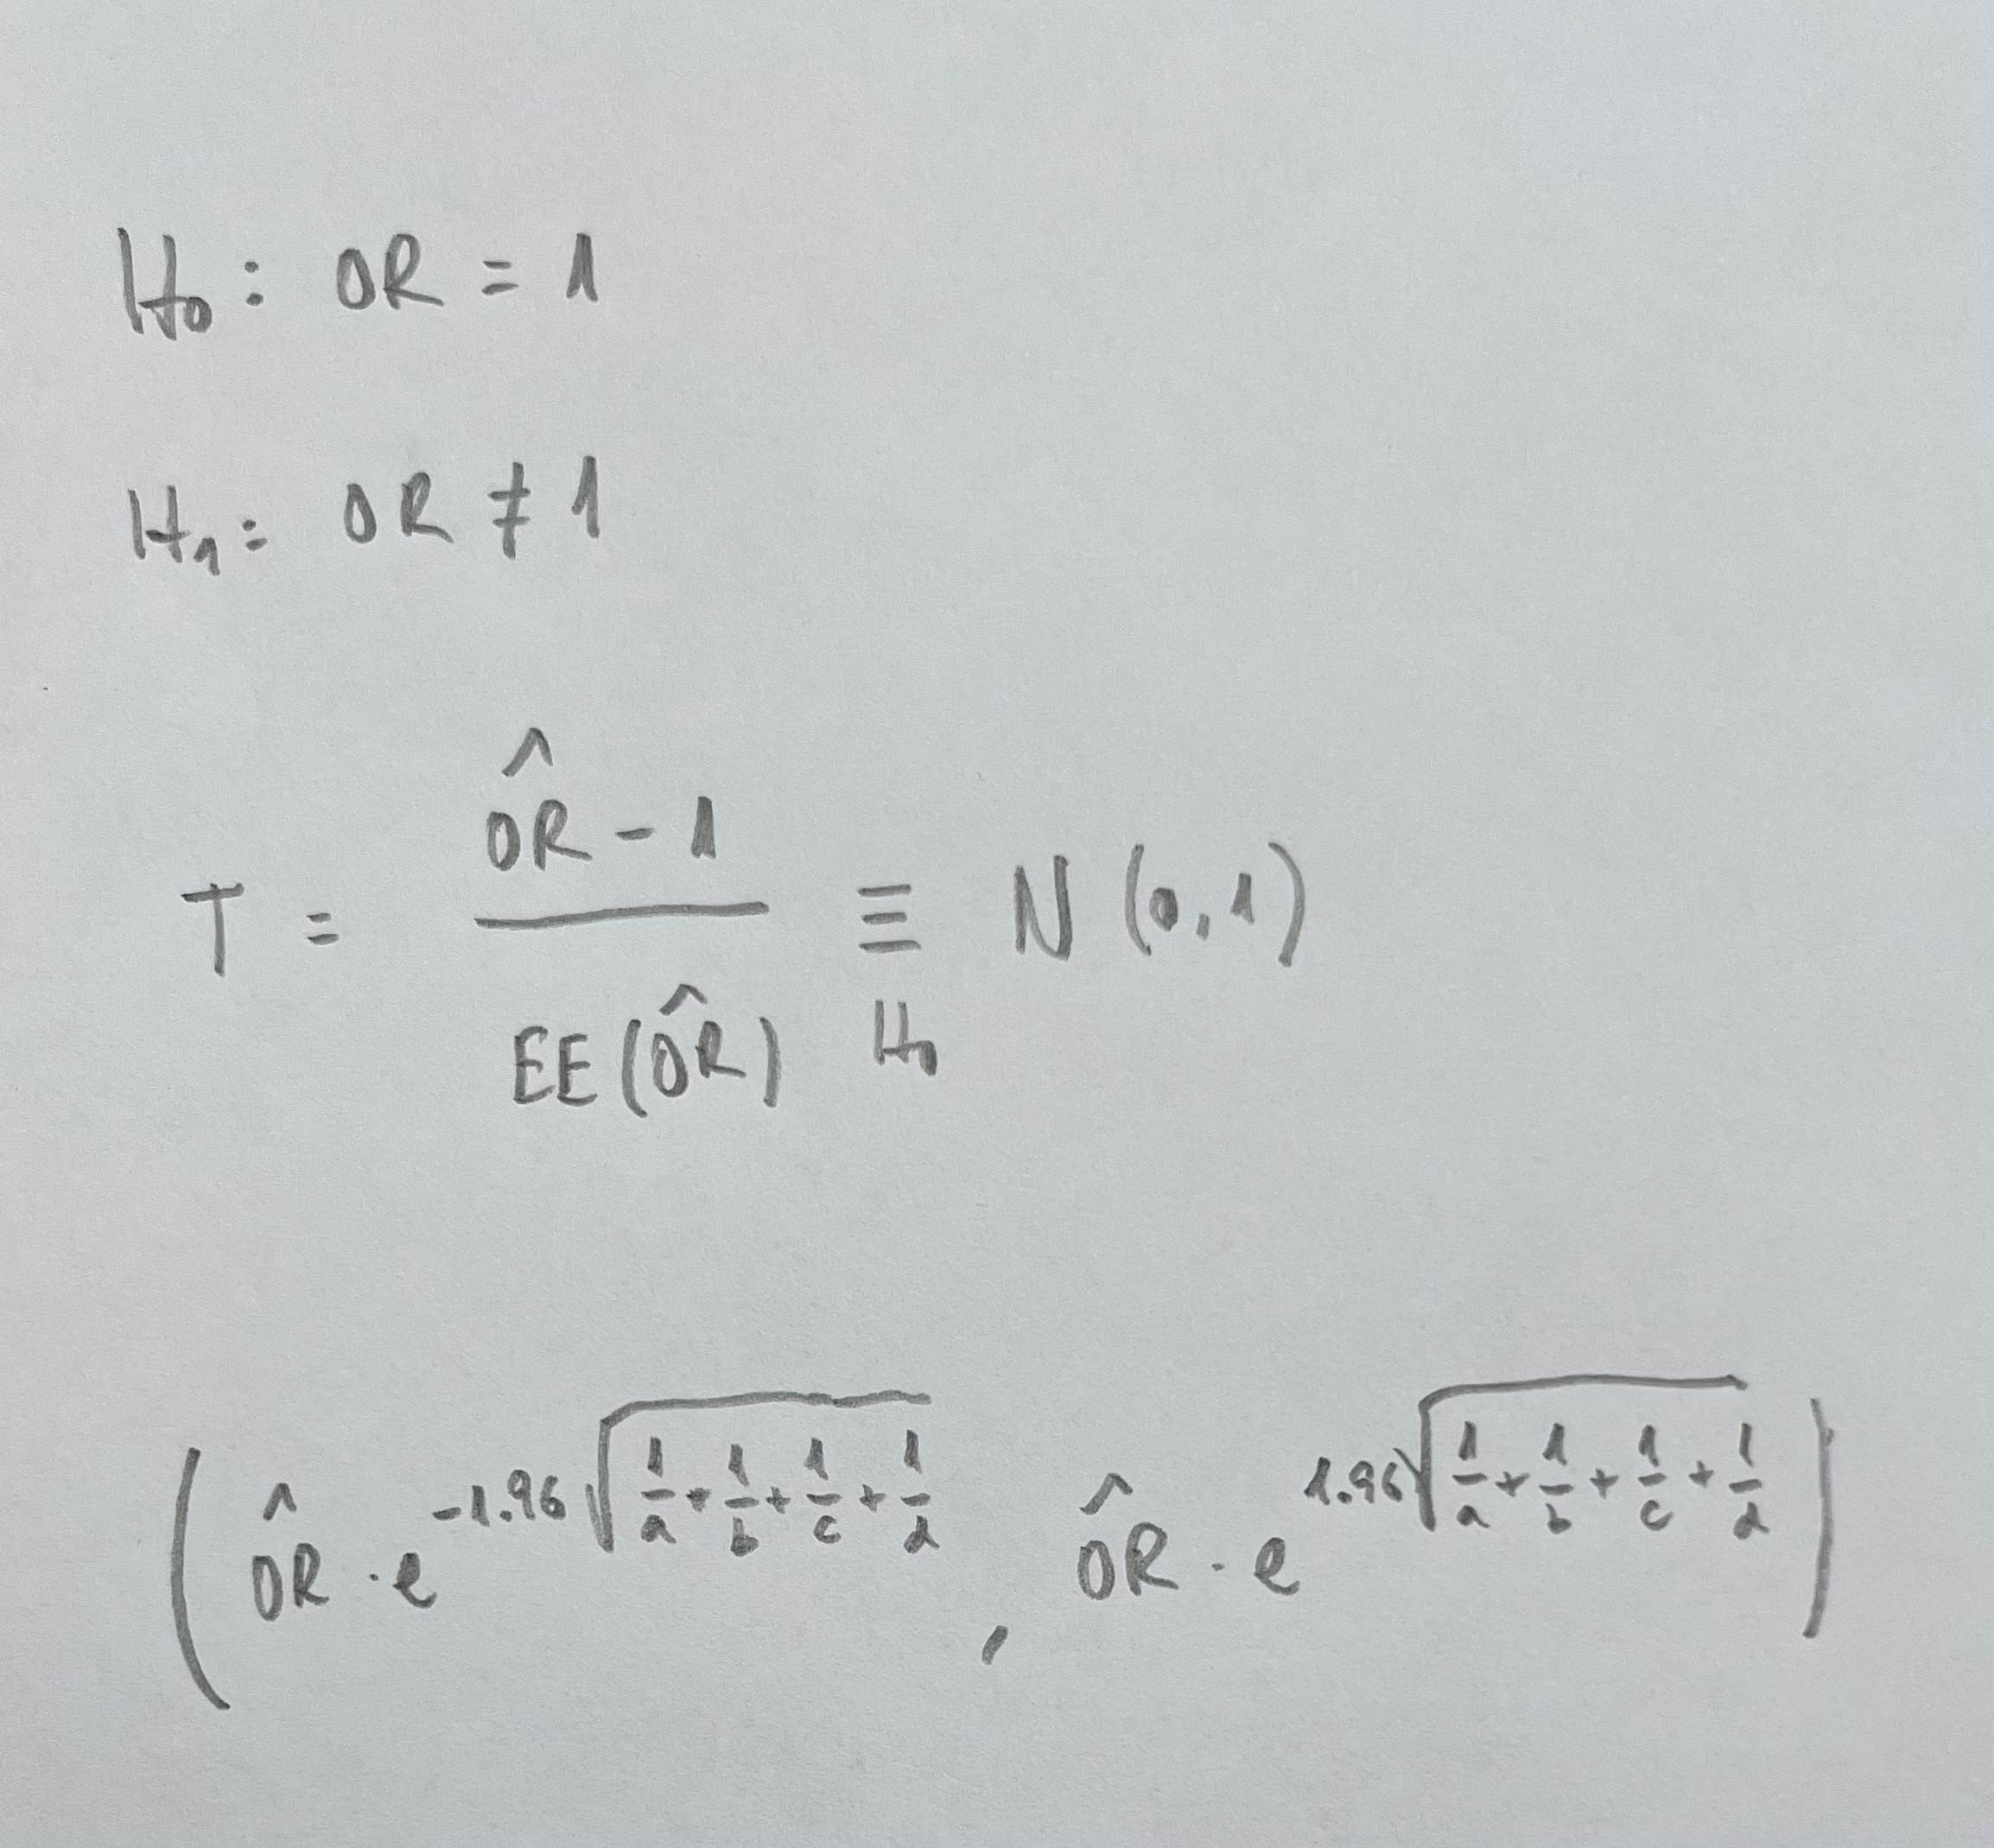 H₀: OR = 1
H₁: OR ≠ 1
T = \frac{\hat{OR} - 1}{EE(\hat{OR})} \underset{H_0}{\equiv} N(0,1)
\left( \hat{OR} \cdot e^{-1.96 \sqrt{\frac{1}{a} + \frac{1}{b} + \frac{1}{c} + \frac{1}{d}}} , \hat{OR} \cdot e^{1.96 \sqrt{\frac{1}{a} + \frac{1}{b} + \frac{1}{c} + \frac{1}{d}}} \right)